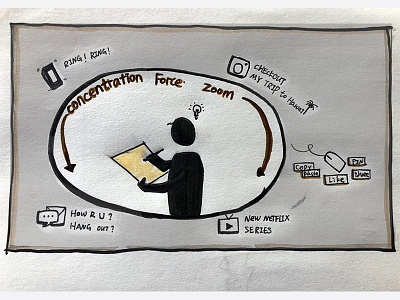 RING! RING!
CHECKOUT
MY TRIP to Hawaii
concentration Force zoom
COPY
Paste
Like
Pin
Share
HOW R U?
HANG OUT?
NEW NETFLIX
SERIES